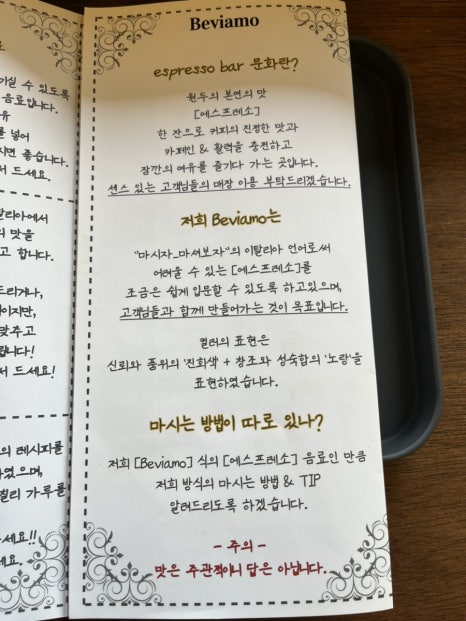 기실 수 있도록
음료입니다.
유
를 넣어
지면 좋습니다.
서 드세요.
탈리아에서
의 맛을
고 합니다.
드리거나,
이지만,
맞추고
랍니다!
서 드세요!
의 레시피를
하였으며,
젤리 가루를
세요!!
세요.
Beviamo
espresso bar 문화란?
원두의 본연의 맛
[에스프레소]
한 잔으로 커피의 진정한 맛과
카페인 & 활력을 충전하고
잠깐의 여유를 즐기다 가는 곳입니다.
센스 있는 고객님들의 매장 이용 부탁드리겠습니다.
저희 Beviamo는
"마시자_마셔보자"의 이탈리아 언어로써
어려울 수 있는 [에스프레소]를
조금은 쉽게 입문할 수 있도록 하고있으며,
고객님들과 함께 만들어가는 것이 목표입니다.
컬러의 표현은
신뢰와 품위의 '진회색' + 창조와 성숙함의 '노랑'을
표현하였습니다.
마시는 방법이 따로 있나?
저희 [Beviamo] 식의 [에스프레소] 음료인 만큼
저희 방식의 마시는 방법 & TIP
알려드리도록 하겠습니다.
- 주의 -
맛은 주관적이니 답은 아닙니다.